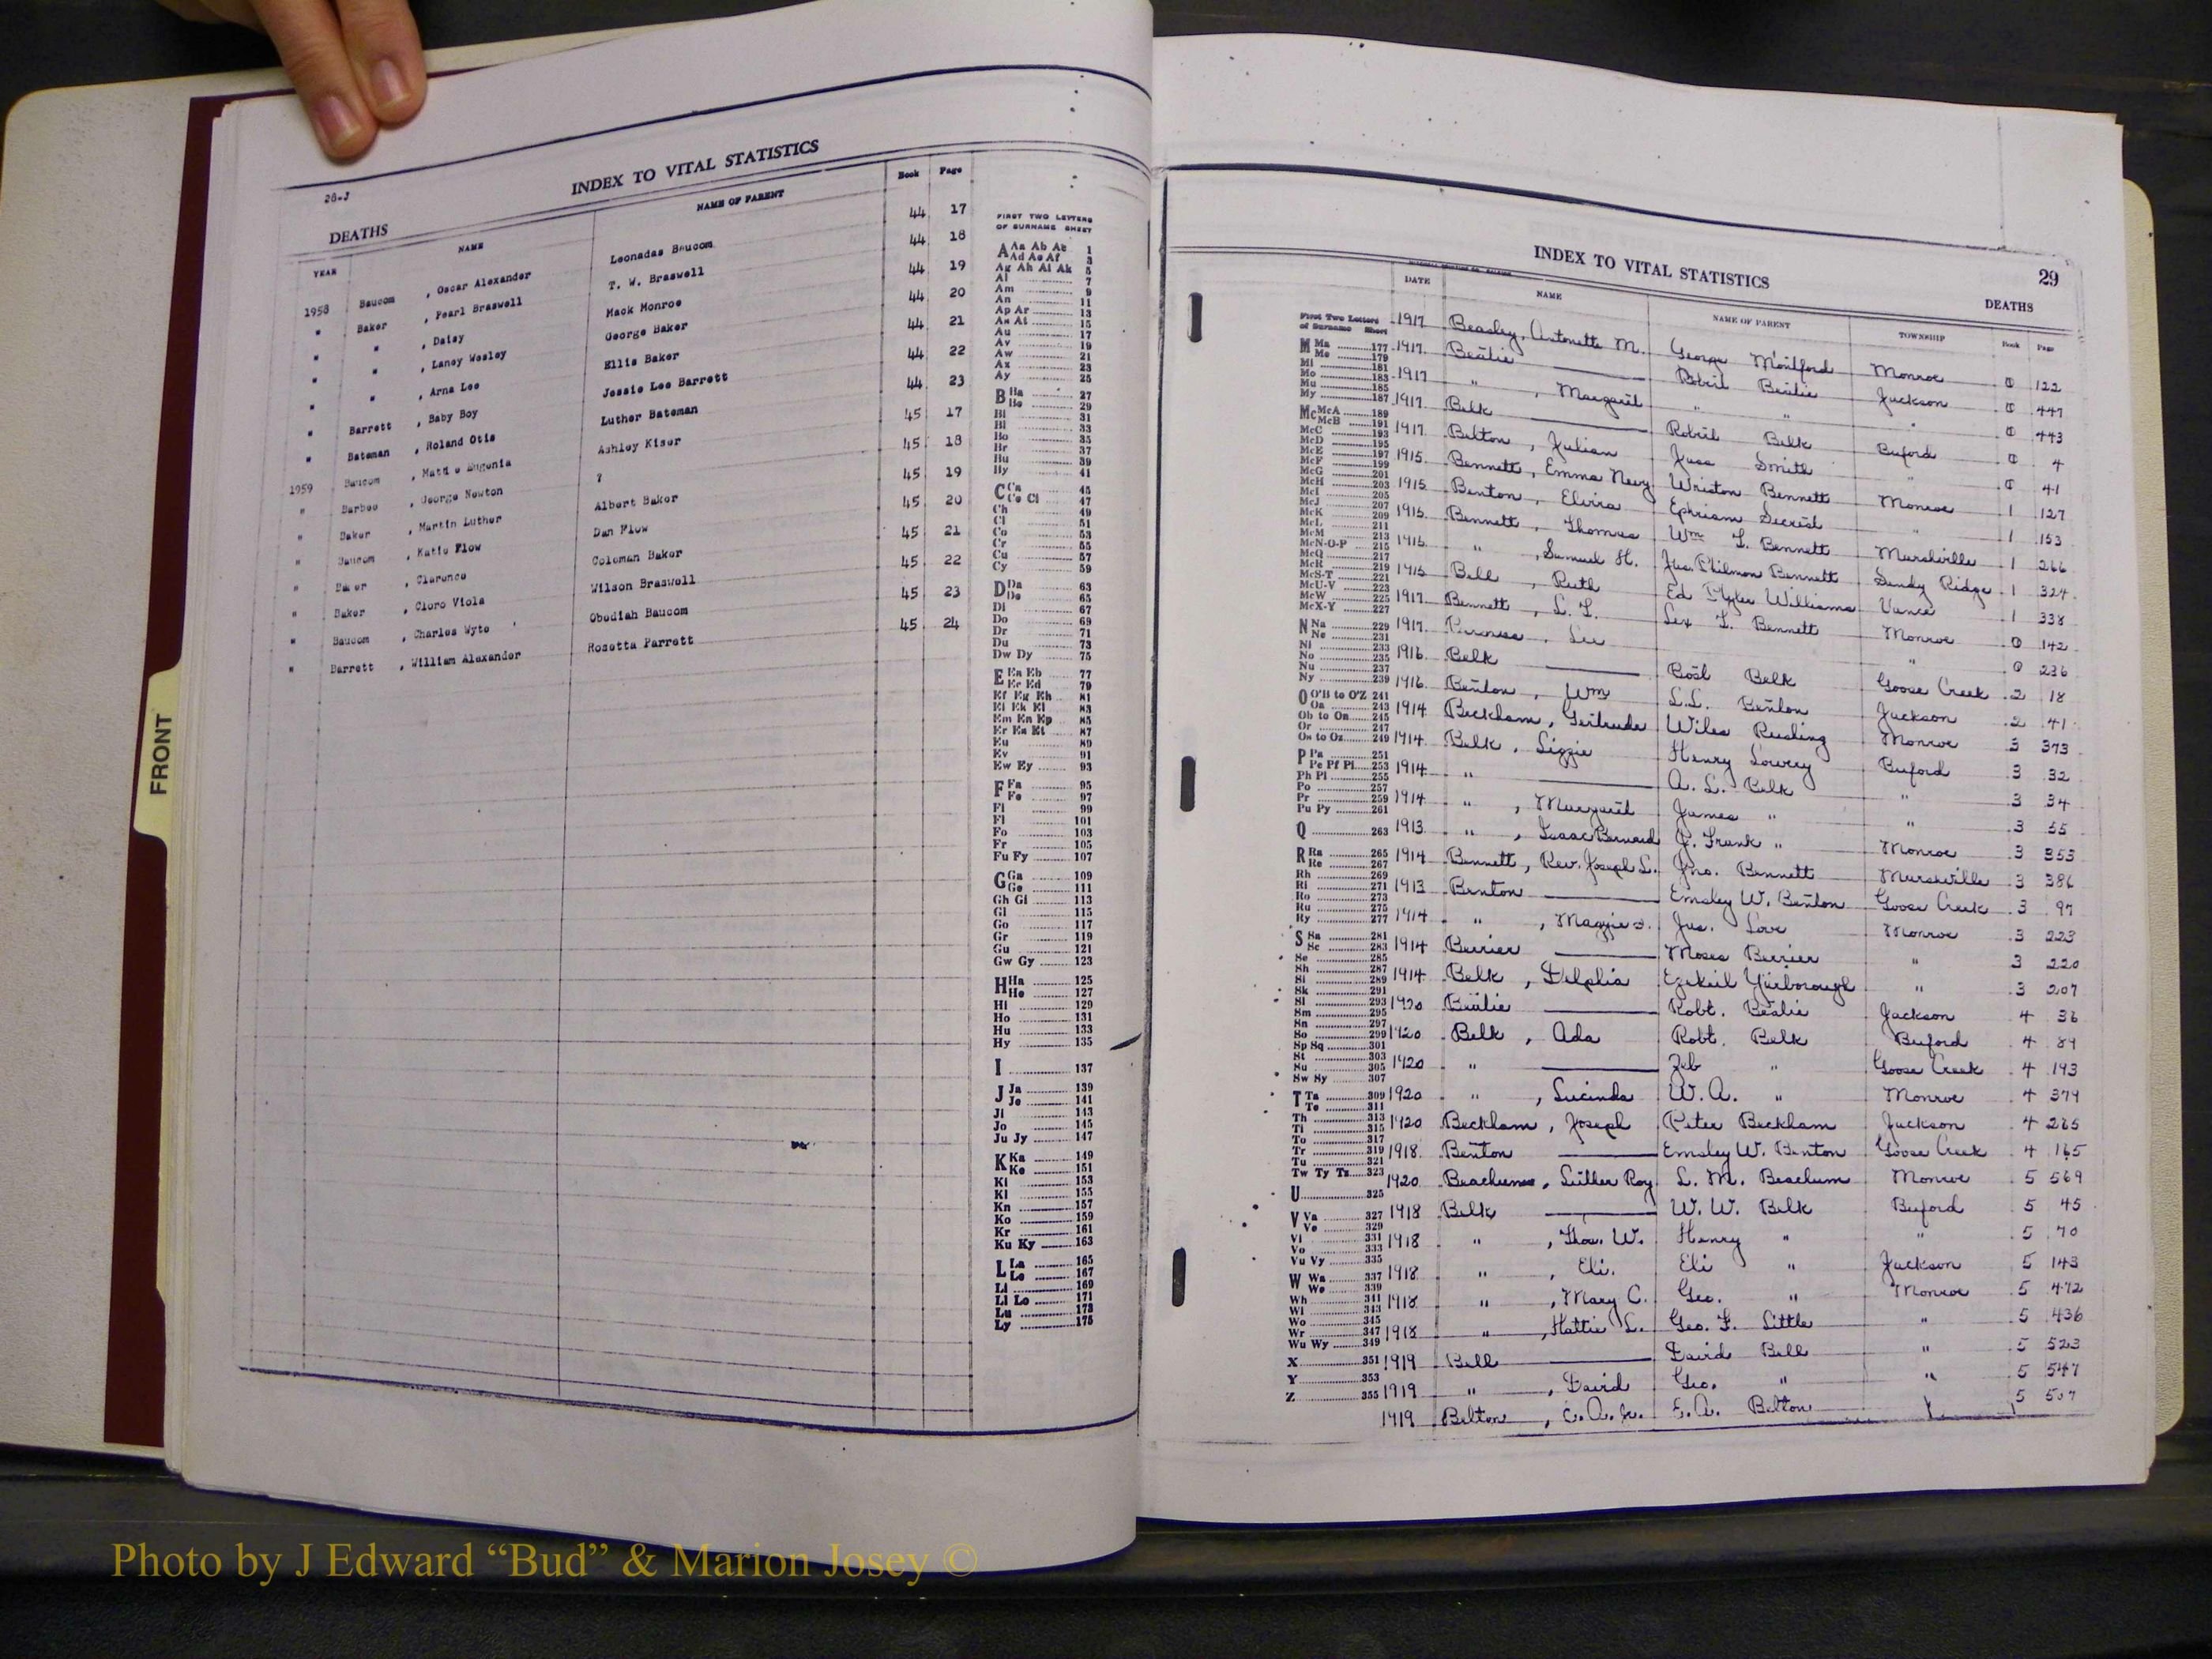 28-J
INDEX TO VITAL STATISTICS
DEATHS
YEAR NAME NAME OF PARENT Book Page
1958 Baucom , Oscar Alexander Leonadas Baucom 44 17
" Baker , Pearl Braswell T. W. Braswell 44 18
" " , Daisy Mack Monroe 44 19
" " , Laney Wesley George Baker 44 20
" " , Arna Lee Ellis Baker 44 21
" Barrett , Baby Boy Jessie Lee Barrett 44 22
" Bateman , Roland Otis Luther Bateman 44 23
1959 Baucom , Eugenia Ashley Kiser 45 17
" Barbee , George Newton ? 45 18
" Baker , Martin Luther Albert Baker 45 19
" Baucom , Katie Flow Dan Flow 45 20
" Baker , Clarence Coleman Baker 45 21
" Baker , Cloro Viola Wilson Braswell 45 22
" Baucom , Charles Wyte Obediah Baucom 45 23
" Barrett , William Alexander Rosetta Parrett 45 24
FIRST TWO LETTERS
OF SURNAME SHEET
A Aa Ab Ac 1
Ad Ae Af 3
Ag Ah Ai Ak 5
Al 7
Am 9
An 11
Ap Ar 13
As At 15
Au 17
Av 19
Aw 21
Ax 23
Ay 25
B Ba 27
Be 29
Bi 31
Bl 33
Bo 35
Br 37
Bu 39
By 41
C Ca 45
Ce Ci 47
Ch 49
Cl 51
Co 53
Cr 55
Cu 57
Cy 59
D Da 63
De 65
Di 67
Do 69
Dr 71
Du 73
Dw Dy 75
E Ea Eb 77
Ec Ed 79
Ef Eg Eh 81
Ei Ek El 83
Em En Ep 85
Er Es Et 87
Eu 89
Ev 91
Ew Ey 93
F Fa 95
Fe 97
Fi 99
Fl 101
Fo 103
Fr 105
Fu Fy 107
G Ga 109
Ge 111
Gh Gi 113
Gl 115
Go 117
Gr 119
Gu 121
Gw Gy 123
H Ha 125
He 127
Hi 129
Ho 131
Hu 133
Hy 135
I 137
J Ja 139
Je 141
Ji 143
Jo 145
Ju Jy 147
K Ka 149
Ke 151
Ki 153
Kl 155
Kn 157
Ko 159
Kr 161
Ku Ky 163
L La 165
Le 167
Li 169
Ll Lo 171
Lu 173
Ly 175
FRONT
INDEX TO VITAL STATISTICS 29
DEATHS
DATE NAME NAME OF PARENT TOWNSHIP Book Page
First Two Letters
of Surname Sheet
M Ma 177
Me 179
Mi 181
Mo 183
Mu 185
My 187
Mc McA 189
McB 191
McC 193
McD 195
McE 197
McF 199
McG 201
McH 203
McI 205
McJ 207
McK 209
McL 211
McM 213
McN-O-P 215
McQ 217
McR 219
McS-T 221
McU-V 223
McW 225
McX-Y 227
N Na 229
Ne 231
Ni 233
No 235
Nu 237
Ny 239
O O'B to O'Z 241
Oa 243
Ob to On 245
Or 247
Os to Oz 249
P Pa 251
Pe Pf Pi 253
Ph Pl 255
Po 257
Pr 259
Pu Py 261
Q 263
R Ra 265
Re 267
Rh 269
Ri 271
Ro 273
Ru 275
Ry 277
S Sa 281
Sc 283
Se 285
Sh 287
Si 289
Sk 291
Sl 293
Sm 295
Sn 297
So 299
Sp Sq 301
St 303
Su 305
Sw Sy 307
T Ta 309
Te 311
Th 313
Ti 315
To 317
Tr 319
Tu 321
Tw Ty Tz 323
U 325
V Va 327
Ve 329
Vi 331
Vo 333
Vu Vy 335
W Wa 337
We 339
Wh 341
Wi 343
Wo 345
Wr 347
Wu Wy 349
X 351
Y 353
Z 355
1917 Beasley, Antonette M. George Montford Monroe 0 122
1917 Beatie Robert Beatie Jackson 0 447
1917 " , Margaret " " " 0 443
1917 Belk Robert Belk Buford 0 4
1917 Belton , Julian Jess Smith " 0 41
1915 Bennett , Emma Nevy Wriston Bennett Monroe 1 127
1915 Benton , Elvira Ephriam Secrest " 1 153
1915 Bennett , Thomas Wm L. Bennett Marshville 1 266
1915 " , Samuel H. Jas. Philmon Bennett Sandy Ridge 1 324
1915 Bell , Ruth Ed Williams Vance 1 338
1917 Bennett , L. L. Lex L. Bennett Monroe 0 142
1917 , Lee " 0 236
1916 Belk Belk Goose Creek 2 18
1916 Benton , Wm L.L. Benton Jackson 2 41
1914 Beckham , Gertrude Wiles Monroe 3 373
1914 Belk , Lizzie Henry Lowery Buford 3 32
1914 " A. L. Belk " 3 34
1914 " , Margaret James " " 3 55
1913 " , Isaac Bernard J. Frank " Monroe 3 353
1914 Bennett , Rev. Joseph L. Jno. Bennett Marshville 3 386
1913 Benton Emsley W. Benton Goose Creek 3 97
1914 " , Maggie Jas. Love Monroe 3 223
1914 Berrier Moses Berrier " 3 220
1914 Belk , Delphia Ezekiel Yarborough " 3 207
1920 Beatie Robt. Beatie Jackson 4 36
1920 Belk , Ada Robt. Belk Buford 4 89
1920 " Zeb " Goose Creek 4 193
1920 " , Lucinda W. A. " Monroe 4 379
1920 Beckham , Joseph Peter Beckham Jackson 4 265
1918 Benton Emsley W. Benton Goose Creek 4 165
1920 Beachum , Luther Roy L. M. Beachum Monroe 5 569
1918 Belk W. W. Belk Buford 5 45
1918 " , Thos. W. Henry " " 5 70
1918 " , Eli. Eli " Jackson 5 143
1918 " , Mary C. Geo. " Monroe 5 472
1918 " , Hattie L. Geo. F. Little " 5 436
1919 Bell David Bell " 5 523
1919 " , David Geo. " " 5 547
1919 Belton , E. A. Jr. E. A. Belton 5 507
Photo by J Edward “Bud” & Marion Josey ©